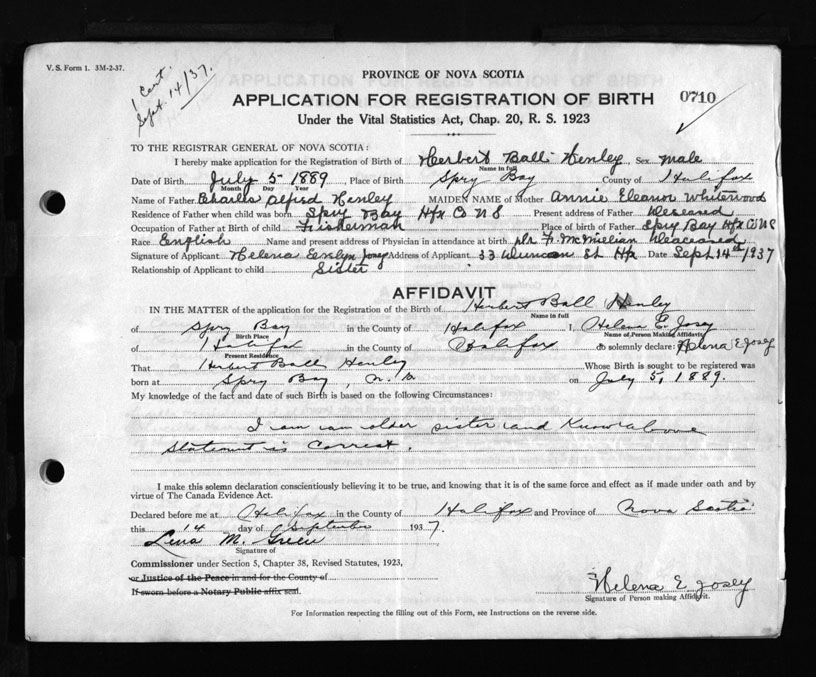 V. S. Form 1. 3M-2-37.
1 Cert.
Sept. 14/37.
PROVINCE OF NOVA SCOTIA
APPLICATION FOR REGISTRATION OF BIRTH 0710
Under the Vital Statistics Act, Chap. 20, R. S. 1923
TO THE REGISTRAR GENERAL OF NOVA SCOTIA:
I hereby make application for the Registration of Birth of Herbert Ball Henley Sex male
Name in full
Date of Birth July 5 1889 Place of Birth Spry Bay County of Halifax
Month Day Year
Name of Father Charles Alfred Henley MAIDEN NAME of Mother Annie Eleanor Whitewood
Residence of Father when child was born Spry Bay Hfx Co N S Present address of Father Deceased
Occupation of Father at Birth of child Fisherman Place of birth of Father Spry Bay Hfx Co N S
Race English Name and present address of Physician in attendance at birth Dr. McMillian Deaceased
Signature of Applicant Helena Evelyn Josey Address of Applicant 33 Duncan St Hfx Date Sept 14th 1937
Relationship of Applicant to child Sister
AFFIDAVIT
IN THE MATTER of the application for the Registration of the Birth of Herbert Ball Henley
Name in full
of Spry Bay in the County of Halifax I, Helena E. Josey
Birth Place Name of Person Making Affidavit
of Halifax in the County of Halifax do solemnly declare: Helena E Josey
Present Residence
That Herbert Ball Henley Whose Birth is sought to be registered was
born at Spry Bay, on July 5, 1889.
My knowledge of the fact and date of such Birth is based on the following Circumstances:
I am an older sister and Know above
Statement is Correct.
I make this solemn declaration conscientiously believing it to be true, and knowing that it is of the same force and effect as if made under oath and by
virtue of The Canada Evidence Act.
Declared before me at Halifax in the County of Halifax and Province of Nova Scotia
this 14 day of September 1937.
Lena M. Green
Signature of
Commissioner under Section 5, Chapter 38, Revised Statutes, 1923,
or Justice of the Peace in and for the County of
If sworn before a Notary Public affix seal.
Helena E Josey
Signature of Person making Affidavit.
For Information respecting the filling out of this Form, see Instructions on the reverse side.